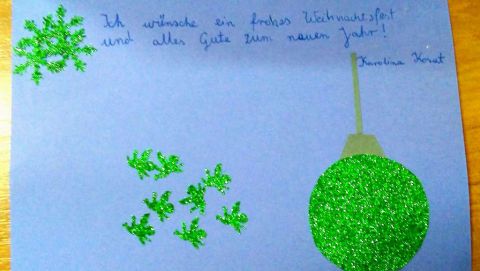 Ich wünsche ein frohes Weihnachtsfest
und alles Gute zum neuen Jahr!
Karolina Kosat